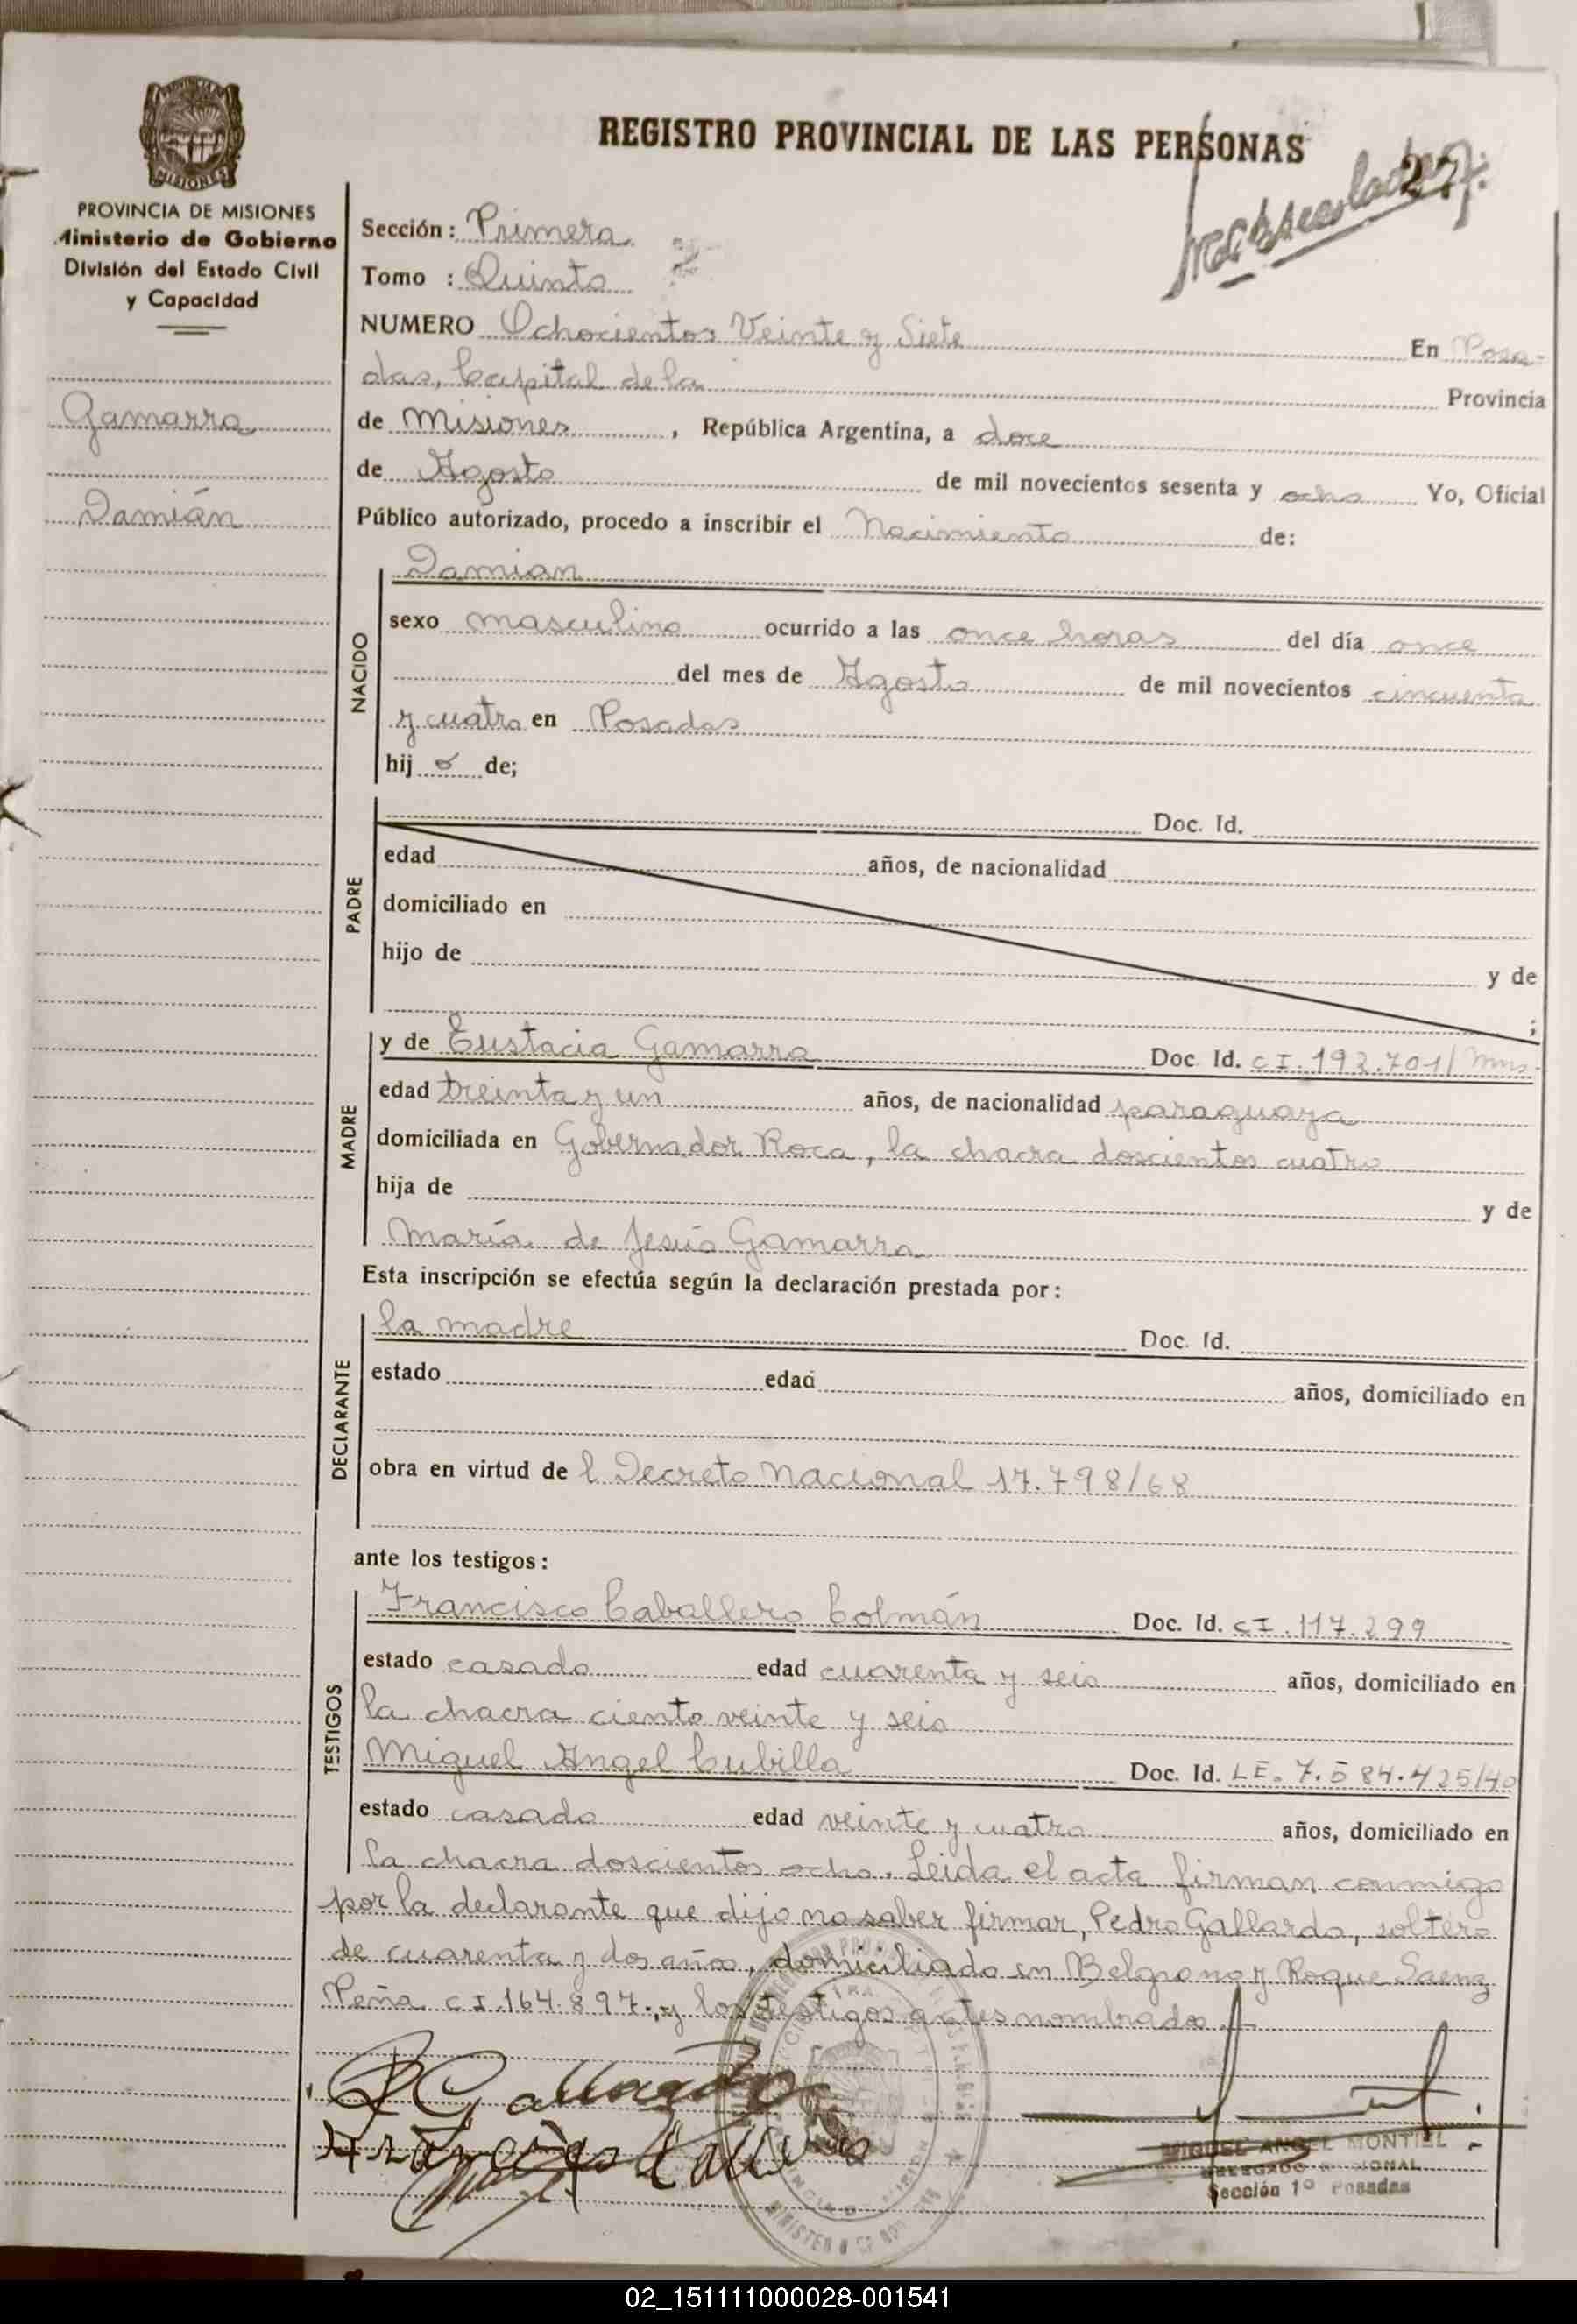 REGISTRO PROVINCIAL DE LAS PERSONAS
27
MISIONES
PROVINCIA DE MISIONES
Ministerio de Gobierno
División del Estado Civil
y Capacidad
Gamarra
Damián
Sección: Primera
Tomo : Quinto
NUMERO Ochocientos Veinte y Siete En Posa-
das, Capital de la Provincia
de Misiones, República Argentina, a doce
de Agosto de mil novecientos sesenta y ocho Yo, Oficial
Público autorizado, procedo a inscribir el Nacimiento de:
NACIDO
Damian
sexo masculino ocurrido a las once horas del día once
del mes de Agosto de mil novecientos cincuenta
y cuatro en Posadas
hij o de;
PADRE
Doc. Id.
edad años, de nacionalidad
domiciliado en
hijo de y de
;
MADRE
y de Eustacia Gamarra Doc. Id. C I. 192.701/ Mnes
edad treinta y un años, de nacionalidad paraguaya
domiciliada en Gobernador Roca, la chacra doscientos cuatro
hija de y de
María de Jesús Gamarra
Esta inscripción se efectúa según la declaración prestada por:
DECLARANTE
la madre Doc. Id.
estado edad años, domiciliado en
obra en virtud de l Decreto Nacional 17.798/68
ante los testigos:
TESTIGOS
Francisco Caballero Colmán Doc. Id. C I. 117.299
estado casado edad cuarenta y seis años, domiciliado en
la chacra ciento veinte y seis
Miguel Angel Cubilla Doc. Id. L E. 7.584.425/40
estado casado edad veinte y cuatro años, domiciliado en
la chacra doscientos ocho. Leida el acta firman conmigo
por la declarante que dijo no saber firmar, Pedro Gallardo, soltero
de cuarenta y dos años, domiciliado en Belgrano y Roque Saenz
Peña C I. 164.897; y los testigos antes nombrados.
P Gallardo
Francisco Caballero
MIGUEL ANGEL MONTIEL
DELEGADO
Sección 1º Posadas
02_151111000028-001541